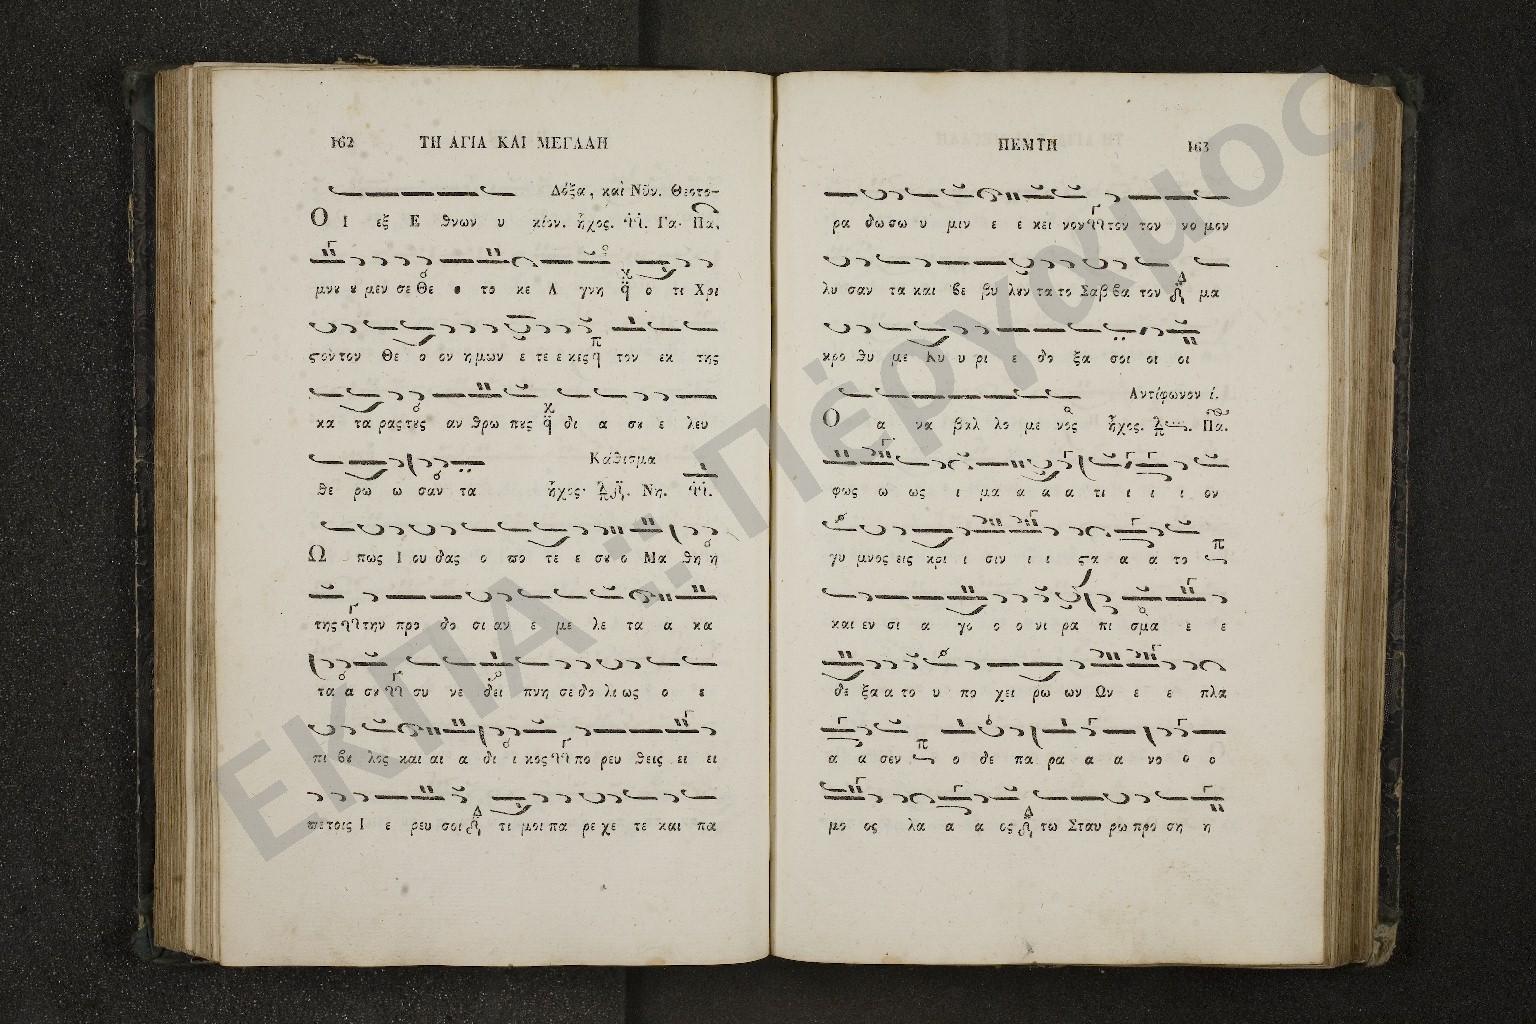 162 ΤΗ ΑΓΙΑ ΚΑΙ ΜΕΓΑΛΗ
Δόξα, καὶ Νῦν. Θεοτο-
Ο Ι εξ Ε θνων υ κίον. ἦχος. Γα. Πα.
μνȣ ȣ μεν σε Θε ο το κε Α γνη ο τι Χρι
ςον τον Θε ο ον η μων ε τε ε κες τον εκ της
κα τα ρας τȣς αν θρω πȣς δι α σȣ ε λευ
Κάθισμα
θε ρω ω σαν τα ἦχος. Νη.
Ω πως Ι ου δας ο πο τε ε σȣ ο Μα θη η
της την προ δο σι αν ε με λε τα α κα
τα α σȣ συ νε δει πνη σε δο λι ως ο ε
πι βȣ λος και αι α δι ι κος πο ρευ θεις ει ει
πε τοις Ι ε ρευ σοι τι μοι πα ρε χε τε και πα
ΠΕΜΤΗ 163
ρα δω σω υ μιν ε ε κει νον τον τον νο μον
λυ σαν τα και βε βη λȣν τα το Σαβ βα τον μα
κρο θυ με Κυ υ ρι ε δο ξα σοι οι οι
Αντίφωνον ί.
Ο α να βαλ λο με νος ἦχος. Πα.
φως ω ως ι μα α α α τι ι ι ι ον
γυ μνος εις κρι ι σιν ι ι ςα α α α το
και εν σι α γο ο ο νι ρα πι σμα ε ε
δε ξα α το υ πο χει ρω ων Ων ε ε πλα
α α σεν ο δε πα ρα α α νο ο ο
μο ος λα α α ος τω Σταυ ρω προ ση η
ΕΚΠΑ :: Πέργαμος